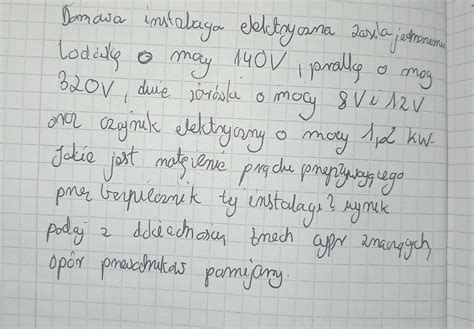 Domowa instalacja elektryczna zasila jednocześnie
lodówkę o mocy 140V, pralkę o mocy
320V, dwie żarówki o mocy 8V i 12V
oraz czajnik elektryczny o mocy 1,2 kW.
Jakie jest natężenie prądu przepływającego
przez bezpiecznik tej instalacji? Wynik
podaj z dokładnością trzech cyfr znaczących,
opór przewodników pomijamy.